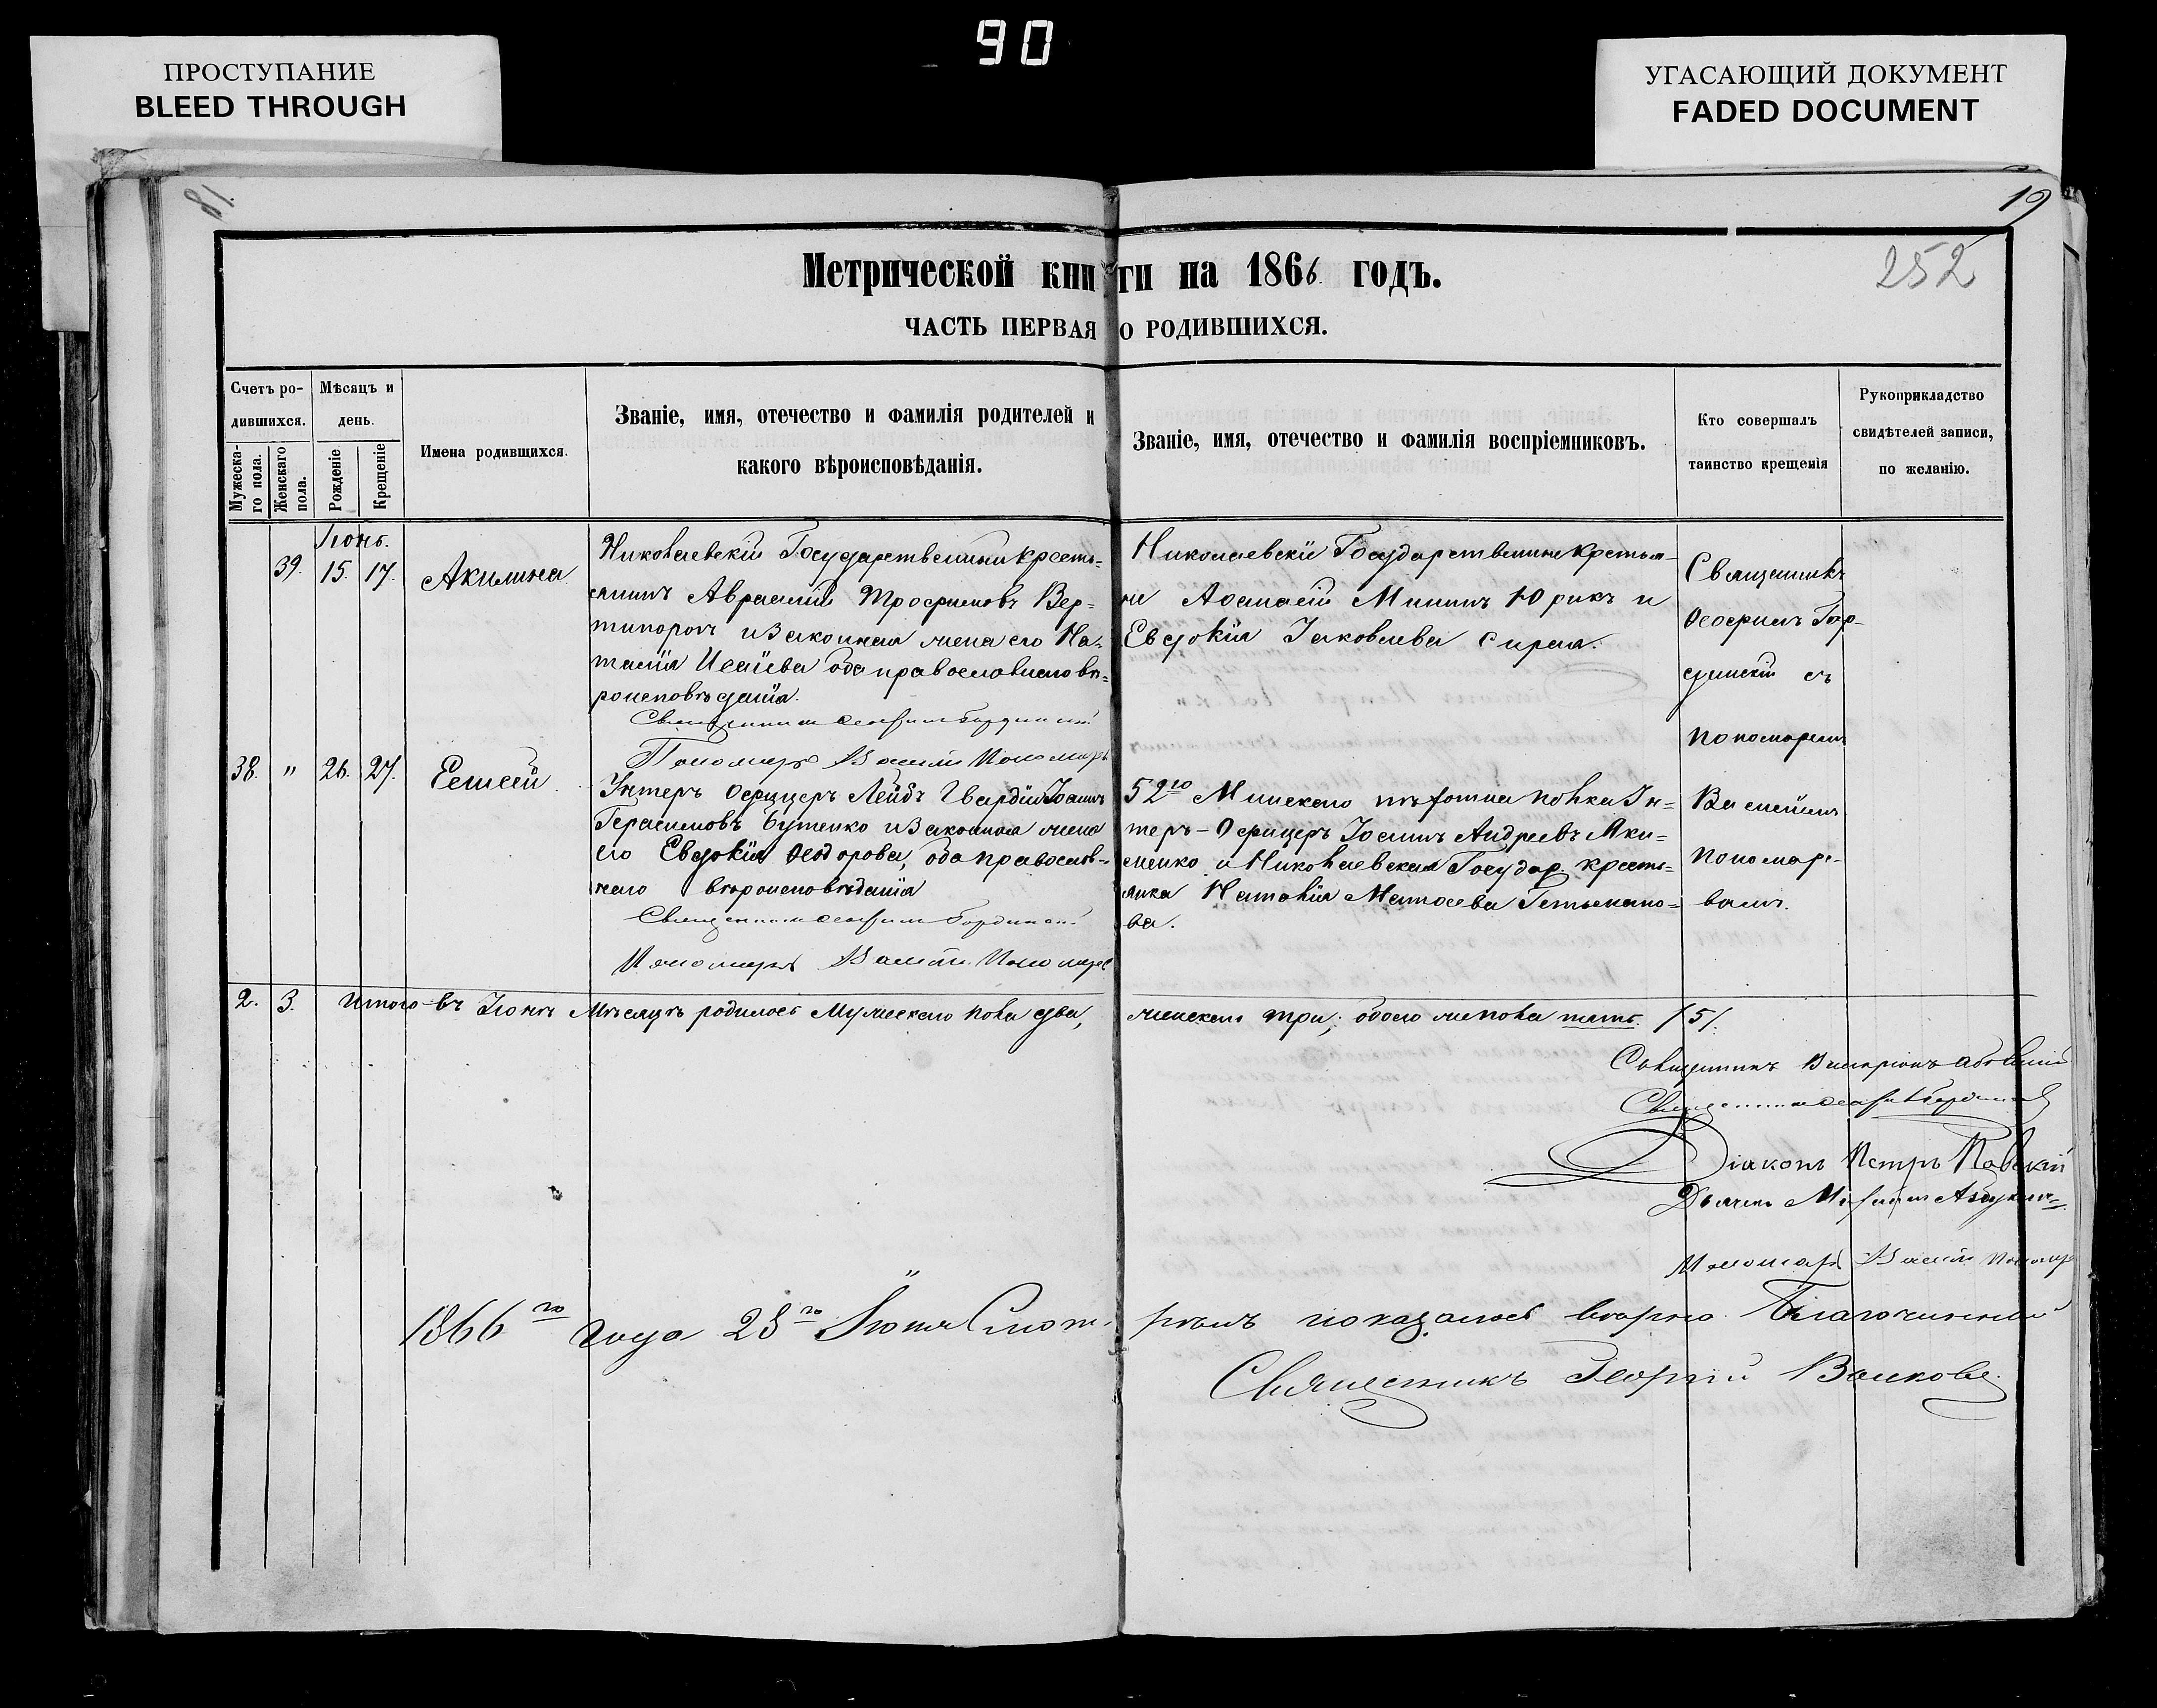 90
ПРОСТУПАНИЕ
BLEED THROUGH
УГАСАЮЩИЙ ДОКУМЕНТ
FADED DOCUMENT
81.
19
252
Метрической книги на 1866 годъ.
ЧАСТЬ ПЕРВАЯ О РОДИВШИХСЯ.
Счетъ ро-
дившихся.
Мужеска-
го пола.
Женскаго
пола.
Мѣсяцъ и
день.
Рожденіе
Крещеніе
Имена родившихся.
Званіе, имя, отечество и фамилія родителей и
какого вѣроисповѣданія.
Званіе, имя, отечество и фамилія воспріемниковъ.
Кто совершалъ
таинство крещенія
Рукоприкладство
свидѣтелей записи,
по желанію.
Іюнь.
39. 15. 17. Акилина
Николаевскій Государственный кресть-
янинъ Аврамій Трофимовъ Вер-
типорохъ и законная жена его На-
талія Исаіева оба православнаго вѣ-
роисповѣданія.
Николаевскіе Государственные крестья-
не Аѳанасій Мининъ Юрикъ и
Евдокія Іаковлева Сирая.
Священникъ
Ѳеофилъ Бор-
динскій съ
пономаремъ
Пономарь Василій Пономаревъ
38. " 26. 27. Елисей.
Унтеръ Офицеръ Лейбъ Гвардіи Іоаннъ
Герасимовъ Бутенко и законная жена
его Евдокія Ѳеодорова, оба православ-
наго вѣроисповѣданія
52го Минскаго пѣхотна полка Ун-
теръ-Офицеръ Іоаннъ Андреевъ Яки-
менко и Николаевская Государ. кресть-
янка Наталія Матѳеева Гетьмано-
ва.
Василіемъ
Пономаре-
вымъ.
Пономарь Василій Пономарев
2. 3. Итого въ Іюнѣ Мѣсяцѣ родилось Мужескаго пола два,
женскаго три; обоего же пола пять. /5/.
Священникъ
Діаконъ Петръ Павскій
Дьячекъ
Пономарь Василій Пономар
1866го года 28го Іюня Смот-
рѣлъ показалось вѣрно. Благочинный
Священникъ Георгій Волковъ